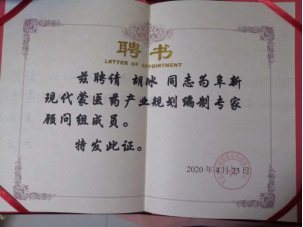 聘书
LETTER OF APPOINTMENT
兹聘请 胡冰 同志为阜新
现代蒙医药产业规划编制专家
顾问组成员。
特发此证。
2020年4月23日